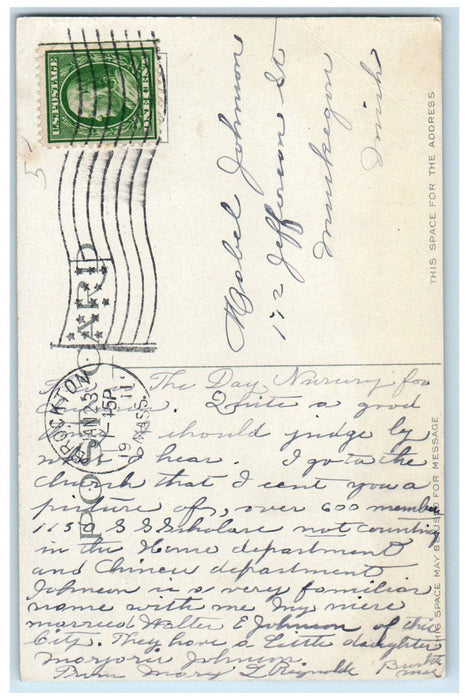 U.S. POSTAGE
ONE CENT
POST CARD
BROCKTON
JAN 23
-15P
19 11
MASS.
THIS SPACE FOR THE ADDRESS
Mabel Johnson
172 Jefferson St
Muskegon
Mich
THIS SPACE MAY BE USED FOR MESSAGE
The Day Nursery for
Quite a good
should judge by
what I hear. I go to the
church that I cent you a
picture of, over 600 member
1150 S S Scholars not counting
in the Home department
and Chinees department
Johnson is a very familiar
name with me my niece
married Walter E Johnson of this
City. They have a little daughter
Marjorie Johnson.
From Mary L Reynolds